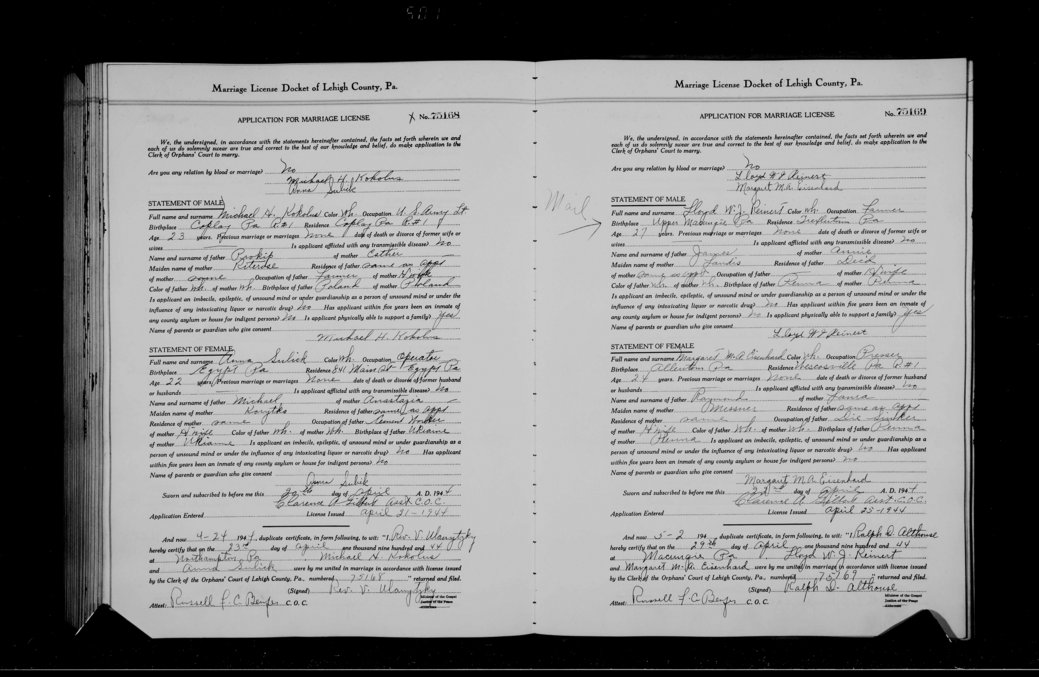 Marriage License Docket of Lehigh County, Pa.
APPLICATION FOR MARRIAGE LICENSE
X No. 75168
We, the undersigned, in accordance with the statements hereinafter contained, the facts set forth wherein we and
each of us do solemnly swear are true and correct to the best of our knowledge and belief, do make application to the
Clerk of Orphans' Court to marry.
Are you any relation by blood or marriage? No
Michael H. Kokolus
Anna Sulick
STATEMENT OF MALE
Full name and surname Michael H. Kokolus Color Wh. Occupation U.S. Army Lt.
Birthplace Coplay Pa R#1 Residence Coplay Pa R#1
Age 23 years. Previous marriage or marriages None date of death or divorce of former wife or
wives Is applicant afflicted with any transmissible disease? No
Name and surname of father Prokip of mother Esther
Maiden name of mother Residence of father same as appl
of mother same Occupation of father Farmer of mother H wife
Color of father Wh. of mother Wh. Birthplace of father Poland of mother Poland
Is applicant an imbecile, epileptic, of unsound mind or under guardianship as a person of unsound mind or under the
influence of any intoxicating liquor or narcotic drug? No Has applicant within five years been an inmate of
any county asylum or house for indigent persons? No Is applicant physically able to support a family? Yes
Name of parents or guardian who give consent
Michael H. Kokolus
STATEMENT OF FEMALE
Full name and surname Anna Sulick Color Wh. Occupation Operator
Birthplace Egypt Pa Residence 841 Main St Egypt Pa
Age 22 years. Previous marriage or marriages None date of death or divorce of former husband
or husbands Is applicant afflicted with any transmissible disease? No
Name and surname of father Michael of mother Anastazia
Maiden name of mother Korytko Residence of father same as appl
Residence of mother same Occupation of father Cement Worker
of mother H wife Color of father Wh. of mother Wh. Birthplace of father Ukraine
of mother Ukraine Is applicant an imbecile, epileptic, of unsound mind or under guardianship as a
person of unsound mind or under the influence of any intoxicating liquor or narcotic drug? No Has applicant
within five years been an inmate of any county asylum or house for indigent persons? No
Name of parents or guardian who give consent
Anna Sulick
Sworn and subscribed to before me this 20th day of April A. D. 1944
Clarence A. Gilbert Asst. C.O.C.
Application Entered License Issued April 21-1944
And now 4-24 1944, duplicate certificate, in form following, to wit: "I, Rev. V.
hereby certify that on the 23rd day of April one thousand nine hundred and 44
at Northampton, Pa Michael H Kokolus
and Anna Sulick were by me united in marriage in accordance with license issued
by the Clerk of the Orphans' Court of Lehigh County, Pa., numbered 75168" returned and filed.
(Signed) Rev. V.
Minister of the Gospel
Justice of the Peace
Alderman
Attest: Russell F. C. Benfer C.O.C.
Marriage License Docket of Lehigh County, Pa.
APPLICATION FOR MARRIAGE LICENSE
No. 75169
We, the undersigned, in accordance with the statements hereinafter contained, the facts set forth wherein we and
each of us do solemnly swear are true and correct to the best of our knowledge and belief, do make application to the
Clerk of Orphans' Court to marry.
Are you any relation by blood or marriage? No
Lloyd W J Reinert
Margaret M.A. Eisenhard
Mail
STATEMENT OF MALE
Full name and surname Lloyd W. J. Reinert Color Wh. Occupation Farmer
Birthplace Upper Macungie Pa Residence Trexlertown Pa
Age 27 years. Previous marriage or marriages None date of death or divorce of former wife or
wives Is applicant afflicted with any transmissible disease? No
Name and surname of father James of mother Annie
Maiden name of mother Landis Residence of father Died
of mother same as appl Occupation of father of mother H wife
Color of father Wh. of mother Wh. Birthplace of father Penna of mother Penna
Is applicant an imbecile, epileptic, of unsound mind or under guardianship as a person of unsound mind or under the
influence of any intoxicating liquor or narcotic drug? No Has applicant within five years been an inmate of
any county asylum or house for indigent persons? No Is applicant physically able to support a family? Yes
Name of parents or guardian who give consent
Lloyd W J Reinert
STATEMENT OF FEMALE
Full name and surname Margaret M. A. Eisenhard Color Wh. Occupation Presser
Birthplace Allentown Pa Residence Wescosville Pa R#1
Age 24 years. Previous marriage or marriages None date of death or divorce of former husband
or husbands Is applicant afflicted with any transmissible disease? No
Name and surname of father Raymond of mother
Maiden name of mother Messner Residence of father same as appl
Residence of mother same Occupation of father Die Sinker
of mother H wife Color of father Wh. of mother Wh. Birthplace of father Penna
of mother Penna Is applicant an imbecile, epileptic, of unsound mind or under guardianship as a
person of unsound mind or under the influence of any intoxicating liquor or narcotic drug? No Has applicant
within five years been an inmate of any county asylum or house for indigent persons? no
Name of parents or guardian who give consent
Margaret M.A. Eisenhard
Sworn and subscribed to before me this 22nd day of April A. D. 1944
Clarence A. Gilbert Asst. C.O.C.
Application Entered License Issued April 25-1944
And now 5-2 194 , duplicate certificate, in form following, to wit: "I Ralph D. Althouse
hereby certify that on the 29th day of April one thousand nine hundred and 44
at Macungie Pa Lloyd W. J. Reinert
and Margaret M. A. Eisenhard were by me united in marriage in accordance with license issued
by the Clerk of the Orphans' Court of Lehigh County, Pa., numbered 75169" returned and filed.
(Signed) Ralph D. Althouse
Minister of the Gospel
Justice of the Peace
Alderman
Attest: Russell F. C. Benfer C.O.C.